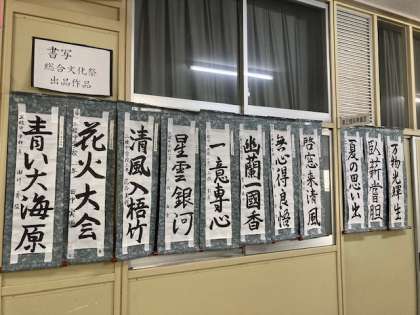 書写
総合文化祭
出品作品
青い大海原
花火大会
清風入梧竹
星雲銀河
一意専心
幽蘭一國香
無心得良悟
啓窓来清風
夏の思い出
臥薪嘗胆
万物光輝生